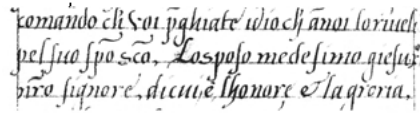 comando chi voi p̄ghiate idio ch̄ a noi lo riveli
pel suo spō scō. Lo sposo medesimo giesu x̄
nr̄o signore, di cui è l honore e la groria.